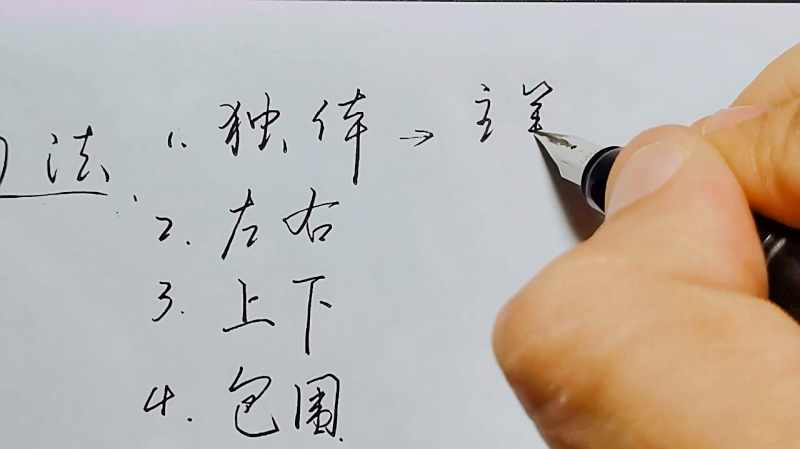 法: 1. 独体 → 主笔
2. 左右
3. 上下
4. 包围